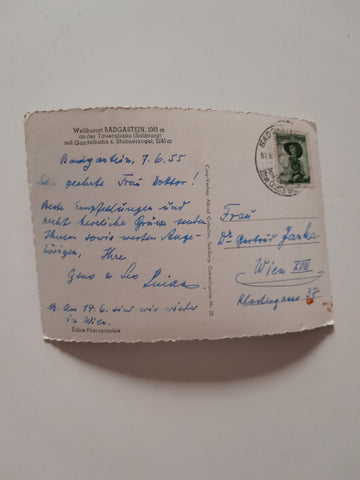 Weltkurort BADGASTEIN, 1083 m
an der Tauernbahn (Salzburg)
mit Gondelbahn z. Stubnerkogel, 2245 m
Badgastein, 7. 6. 55
Sehr geehrte Frau Doktor!
Beste Empfehlungen und
recht herzliche Grüsse senden
Ihnen sowie werten Ange-
hörigen, Ihre
& Leo
Am 14. 6. sind wir wieder
in Wien.
Echte Photographie
Cosy-Verlag, Alfred Gründler, Salzburg,
Frau
Dr. Gertrud Janka
Wien XVII